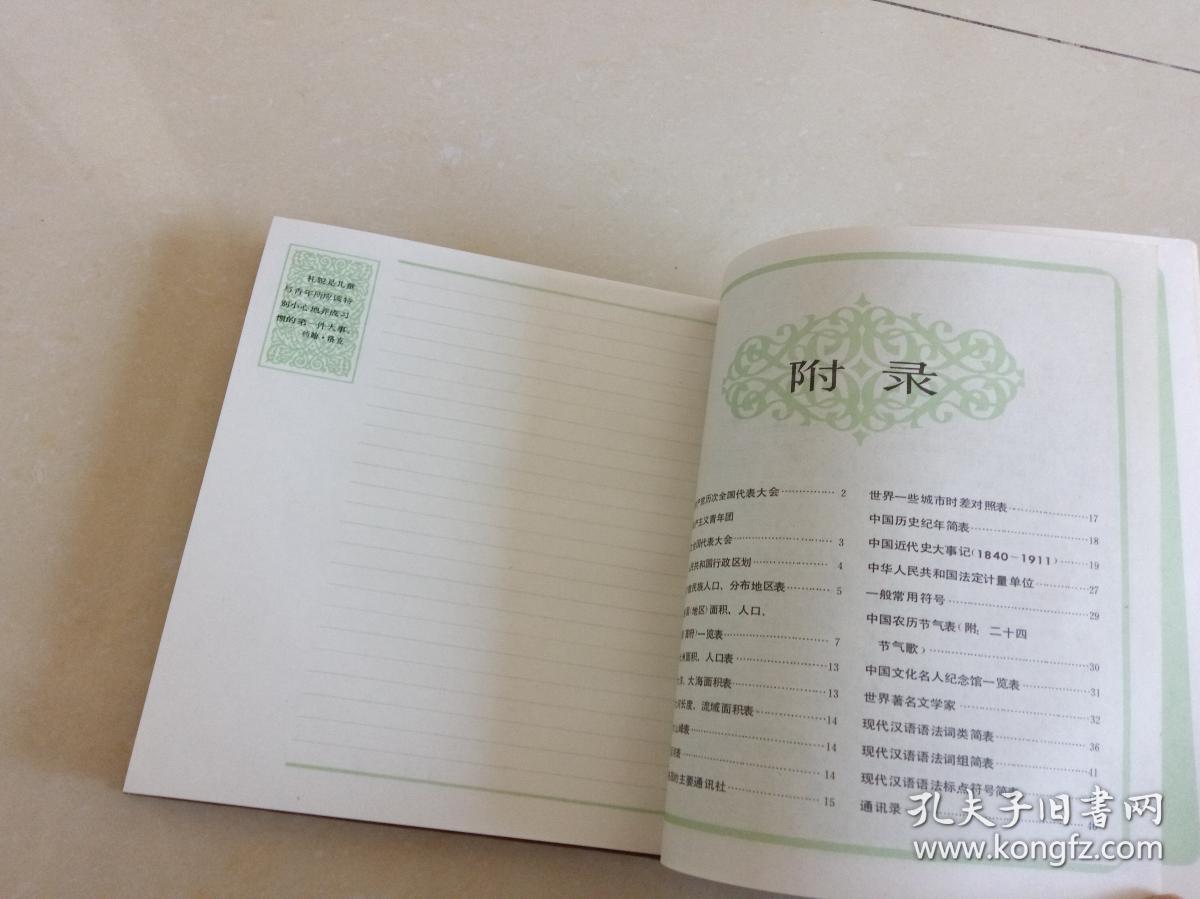 礼貌是儿童
与青年所应该特
别小心地养成习
惯的第一件大事。
约翰·洛克
附录
产党历次全国代表大会……………2
产主义青年团
全国代表大会……………3
民共和国行政区划……………4
数民族人口、分布地区表……………5
地区)面积、人口、
一览表……………7
洲面积、人口表……………13
大海面积表……………13
河长度、流域面积表……………14
山峰表……………14
……………14
的主要通讯社……………15
世界一些城市时差对照表……………17
中国历史纪年简表……………18
中国近代史大事记(1840－1911)……………19
中华人民共和国法定计量单位……………27
一般常用符号……………29
中国农历节气表(附：二十四
节气歌)……………30
中国文化名人纪念馆一览表……………31
世界著名文学家……………32
现代汉语语法词类简表……………36
现代汉语语法词组简表……………41
现代汉语语法标点符号简表
通讯录
孔夫子旧书网
www.kongfz.com